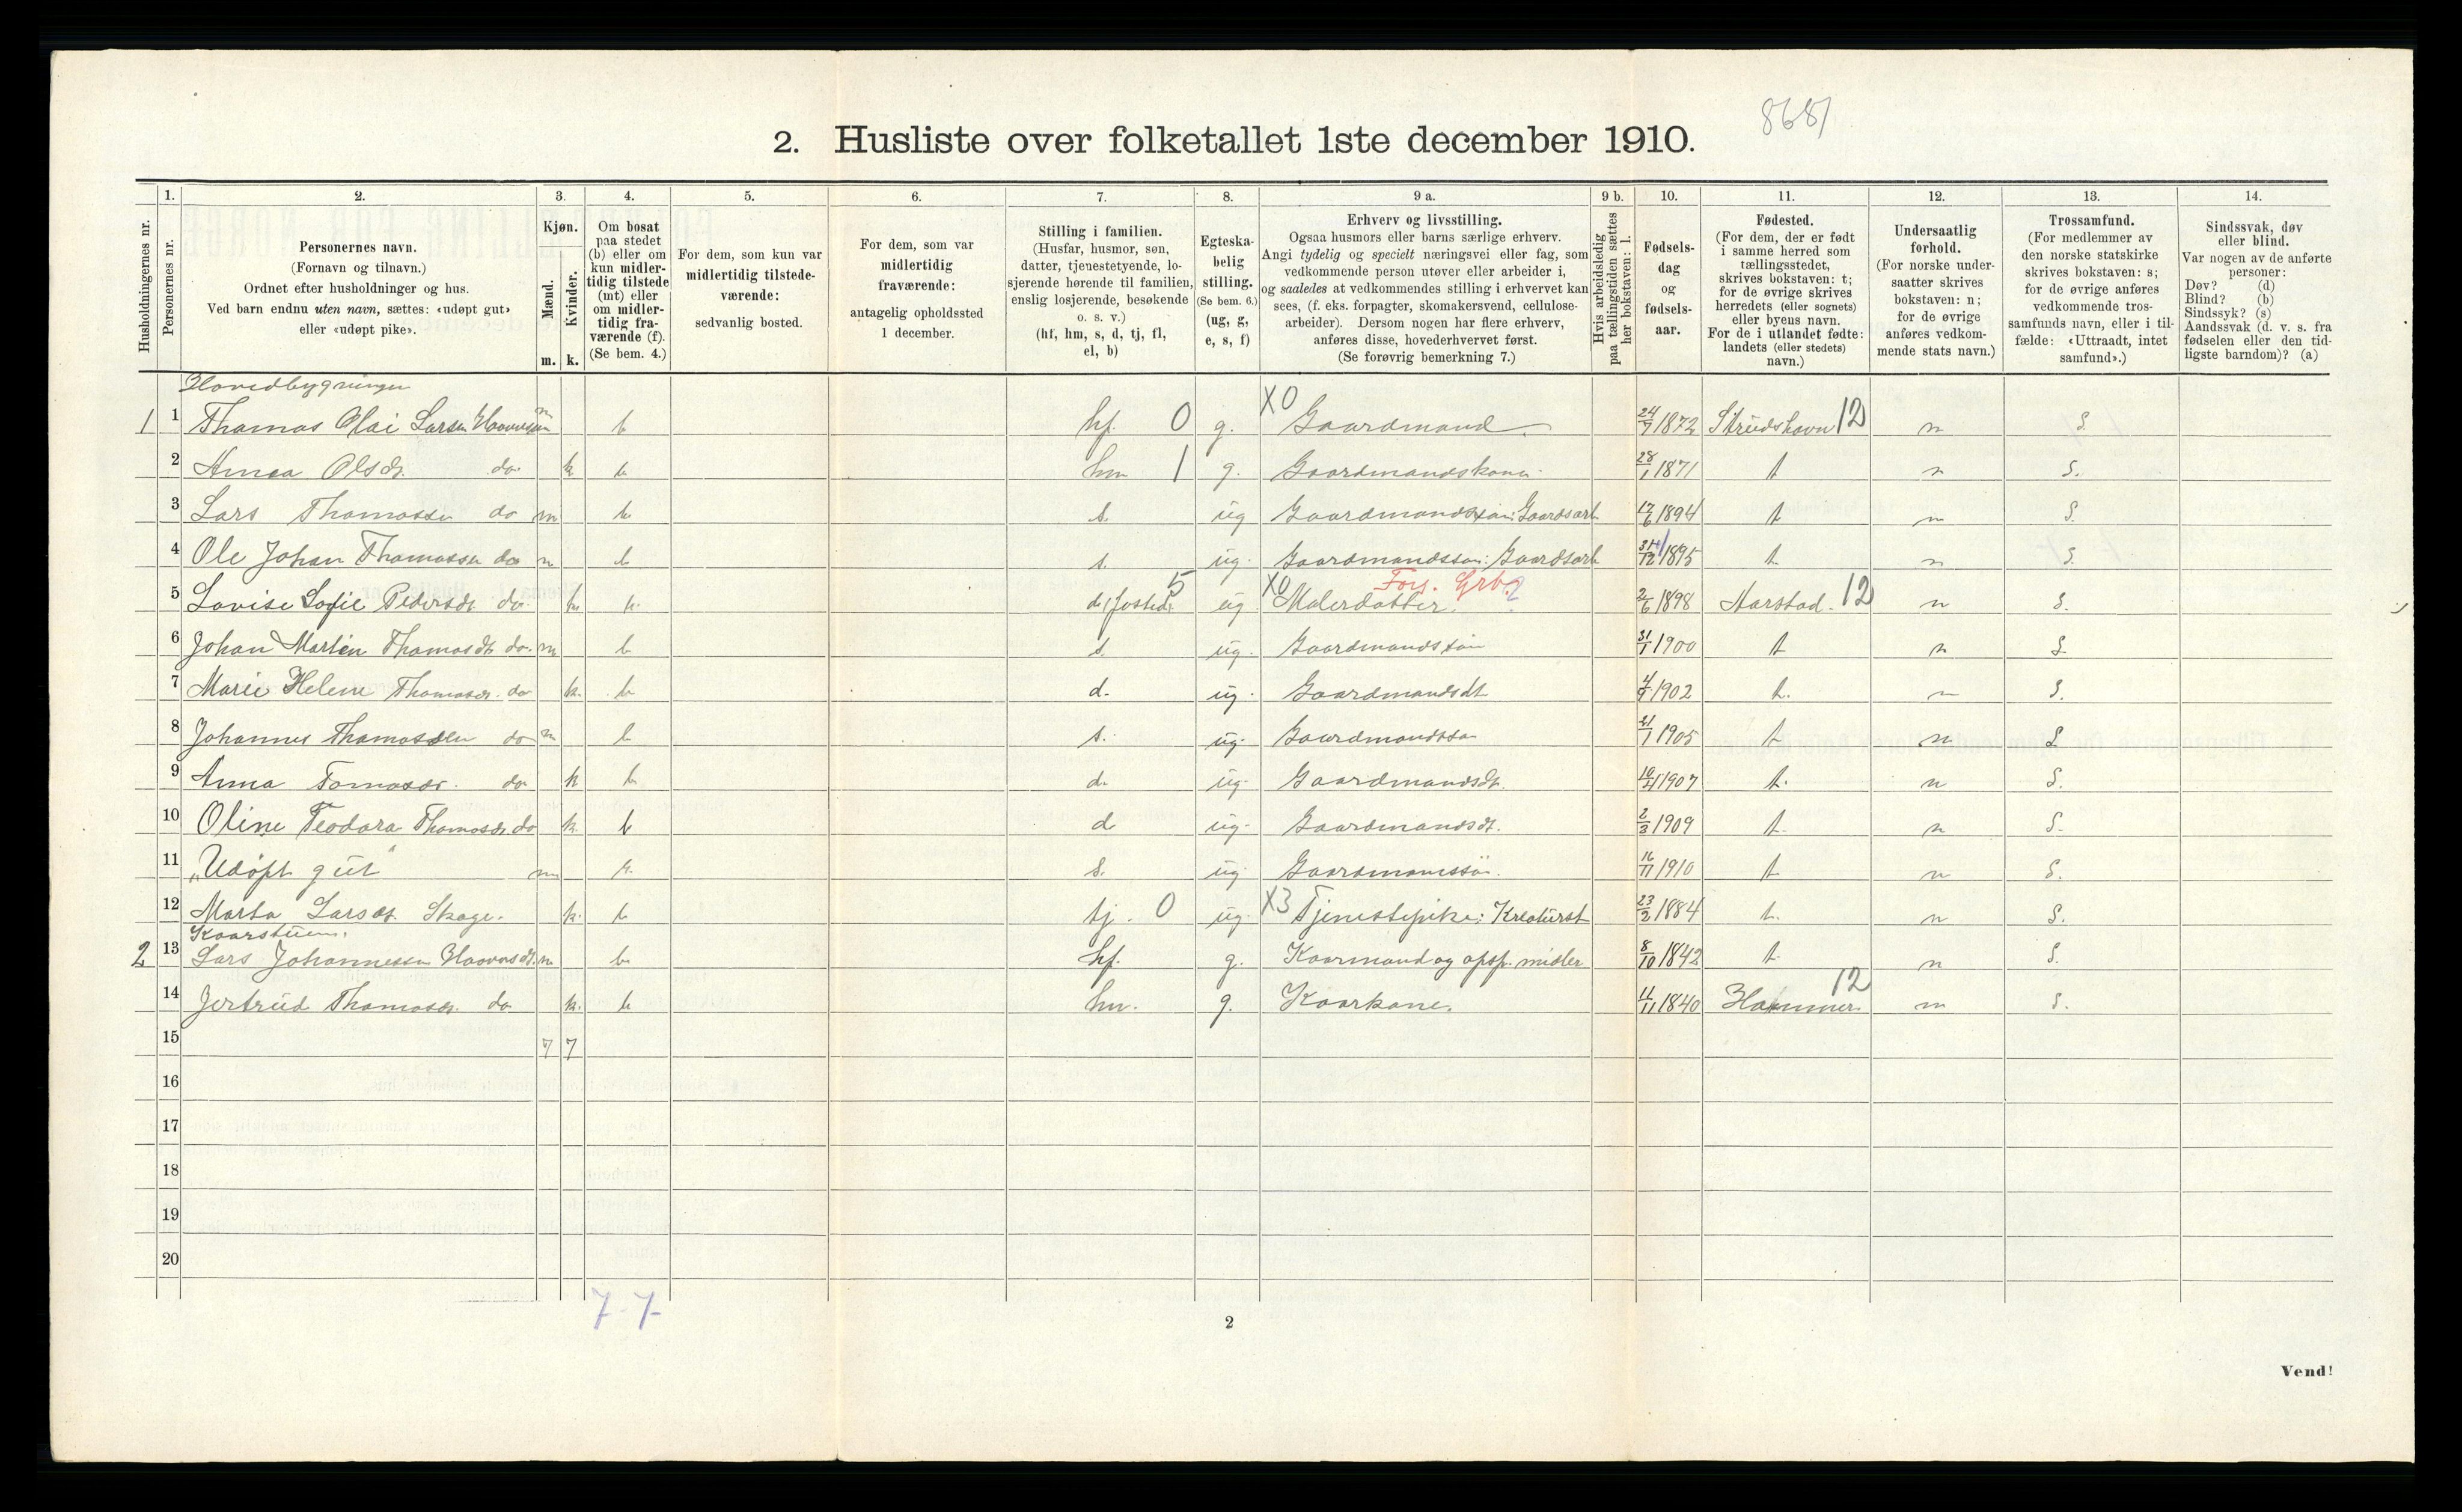 8681
2. Husliste over folketallet 1ste december 1910.
Husholdningernes nr.
1. Personernes nr.
2. Personernes navn.
(Fornavn og tilnavn.)
Ordnet efter husholdninger og hus.
Ved barn endnu uten navn, sættes: «udøpt gut»
eller «udøpt pike».
3. Kjøn.
Mænd. m.
Kvinder. k.
4. Om bosat
paa stedet
(b) eller om
kun midler-
tidig tilstede
(mt) eller
om midler-
tidig fra-
værende (f).
(Se bem. 4.)
5. For dem, som kun var
midlertidig tilstede-
værende:
sedvanlig bosted.
6. For dem, som var
midlertidig
fraværende:
antagelig opholdssted
1 december.
7. Stilling i familien.
(Husfar, husmor, søn,
datter, tjenestetyende, lo-
sjerende hørende til familien,
enslig losjerende, besøkende
o. s. v.)
(hf, hm, s, d, tj, fl,
el, b)
8. Egteska-
belig
stilling.
(Se bem. 6.)
(ug, g,
e, s, f)
9 a. Erhverv og livsstilling.
Ogsaa husmors eller barns særlige erhverv.
Angi tydelig og specielt næringsvei eller fag, som
vedkommende person utøver eller arbeider i,
og saaledes at vedkommendes stilling i erhvervet kan
sees, (f. eks. forpagter, skomakersvend, cellulose-
arbeider). Dersom nogen har flere erhverv,
anføres disse, hovederhvervet først.
(Se forøvrig bemerkning 7.)
9 b. Hvis arbeidsledig
paa tællingstiden sættes
her bokstaven: l.
10. Fødsels-
dag
og
fødsels-
aar.
11. Fødested.
(For dem, der er født
i samme herred som
tællingsstedet,
skrives bokstaven: t;
for de øvrige skrives
herredets (eller sognets)
eller byens navn.
For de i utlandet fødte:
landets (eller stedets)
navn.)
12. Undersaatlig
forhold.
(For norske under-
saatter skrives
bokstaven: n;
for de øvrige
anføres vedkom-
mende stats navn.)
13. Trossamfund.
(For medlemmer av
den norske statskirke
skrives bokstaven: s;
for de øvrige anføres
vedkommende tros-
samfunds navn, eller i til-
fælde: «Uttraadt, intet
samfund».)
14. Sindssvak, døv
eller blind.
Var nogen av de anførte
personer:
Døv? (d)
Blind? (b)
Sindssyk? (s)
Aandssvak (d. v. s. fra
fødselen eller den tid-
ligste barndom)? (a)
Hovedbygningen
1 1 Thomas Olai Larsen m b hf. 0 g. X0 Gaardmand 24/7 1872 Strudshavn 12 n S
2 Olsdt. do k b hm 1 g. Gaardmandskone 28/1 1871 t n S.
3 Lars Thomassen do m b s. ug Gaardmandssøn: Gaardsarb 17/6 1894 t n S.
4 Ole Johan Thomassen do m b s. ug. Gaardmandssøn: Gaardsarb 1895 t. n S.
5 Lovise Sofie Pedersdt do k b d (fosterd) 5 ug X0 Malerdatter. Fors. Grbr ? 2/6 1898 Aarstad 12 n S.
6 Johan Martin Thomasdt do. m b s. ug. Gaardmandssøn 31/1 1900 t n S
7 Marie Helene Thomasdt. do k. b d. ug. Gaardmandsdt 1902 t. n S.
8 Johannes Thomassen do m b s. ug. 21/1 1905 t n S
9 Anna Tomasdt. do k b d. ug. Gaardmandsdt. 1907 t. n S.
10 Oline Teodora Thomasdt do k. b d ug. Gaardmandsdt. 2/3 1909 t. n S.
11 „Udøpt gut" m b s. ug. 16/11 1910 t n S.
12 Marta Larsdt. Skage. k. b tj. 0 ug. X3 Tjenestepike: Kreaturst 23/2 1884 t. n S.
Kaarstuen.
2 13 Lars Johannessen m b hf. g. Kaarmand og opsp. midler 8/10 1842 t n S.
14 Jertrud Thomasdt. do k. b hm. g. Kaarkone. 11/11 1840 Hammer 12 n S.
15 7 7
16
17
18
19
20
7 - 7
2
Vend!